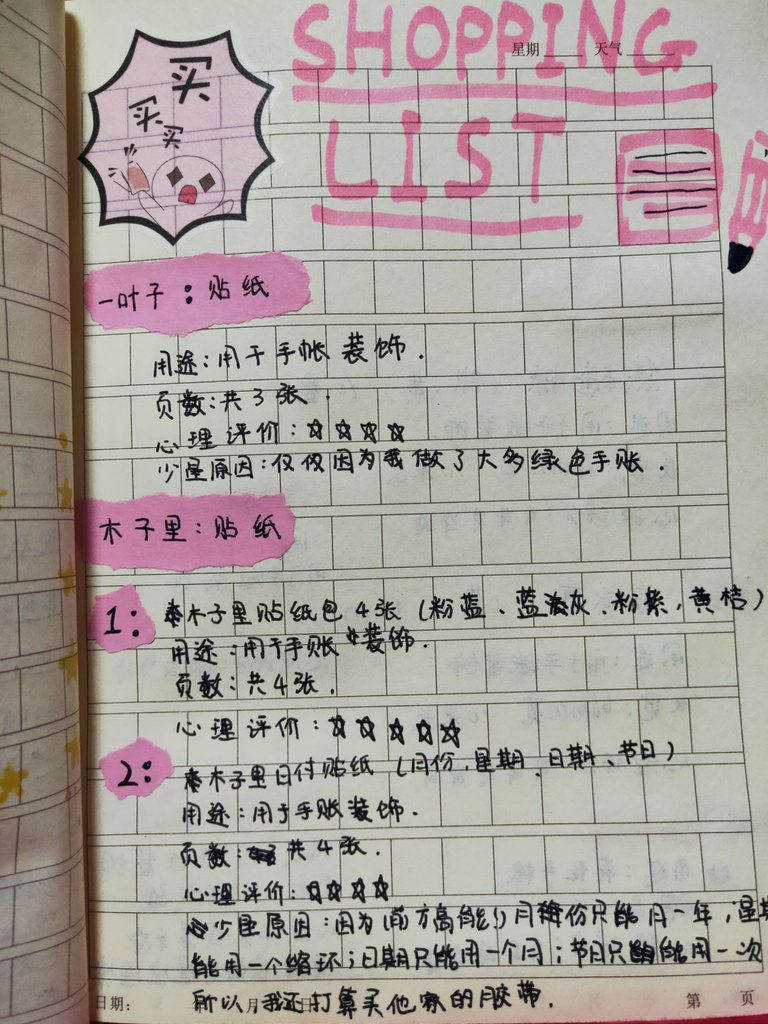 SHOPPING
星期 天气
LIST
买
买
买
一叶子：贴纸
用途：用于手帐装饰.
页数：共3张.
心理评价：☆☆☆☆
少星原因：仅仅因为我做了大多绿色手账.
木子里：贴纸
1：
木子里贴纸包4张（粉蓝、蓝灰、粉紫，黄桔）
用途：用于手账装饰.
页数：共4张.
心理评价：☆☆☆☆☆
2：
木子里日付贴纸（月份，星期、日期、节日）
用途：用于手账装饰.
页数：共4张.
心理评价：☆☆☆☆
少星原因：因为(前方高能!)月份只能用一年，星期
能用一个循环；日期只能用一个月；节日只能用一次
所以，我还打算买他家的胶带.
日期： 年 月 日
第 页